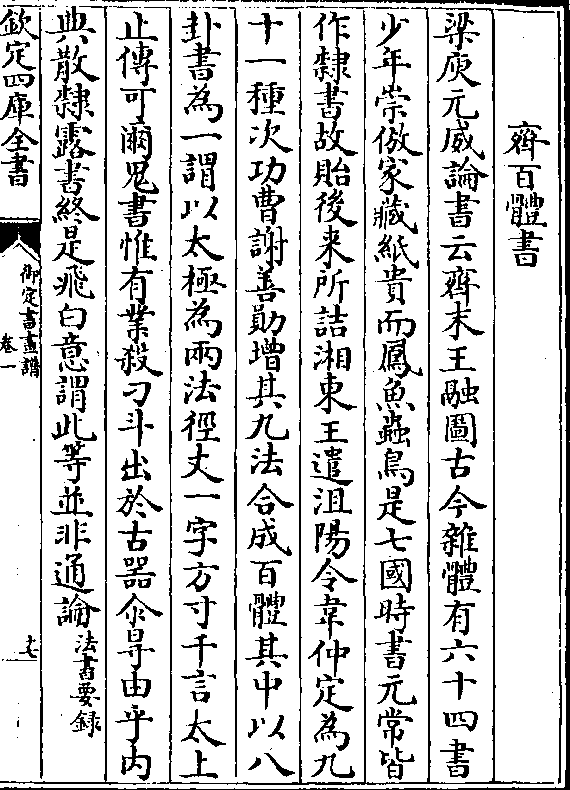 齊百體書
梁庾元威論書云齊末王融圖古今雜體有六十四書
少年崇倣家藏紙貴而鳳魚蟲鳥是七國時書元常皆
作隸書故貽後来所詰湘東王遣沮陽令韋仲定為九
十一種次功曹謝善勛增其九法合成百體其中以八
卦書為一謂以太極為兩法徑丈一字方寸千言太上
止傳可爾鬼書惟有業殺刁斗出於古器尒昇由乎内
典散隸露書終是飛白意謂此等並非通論法書要録
欽定四庫全書
御定書畫譜
卷一
十七